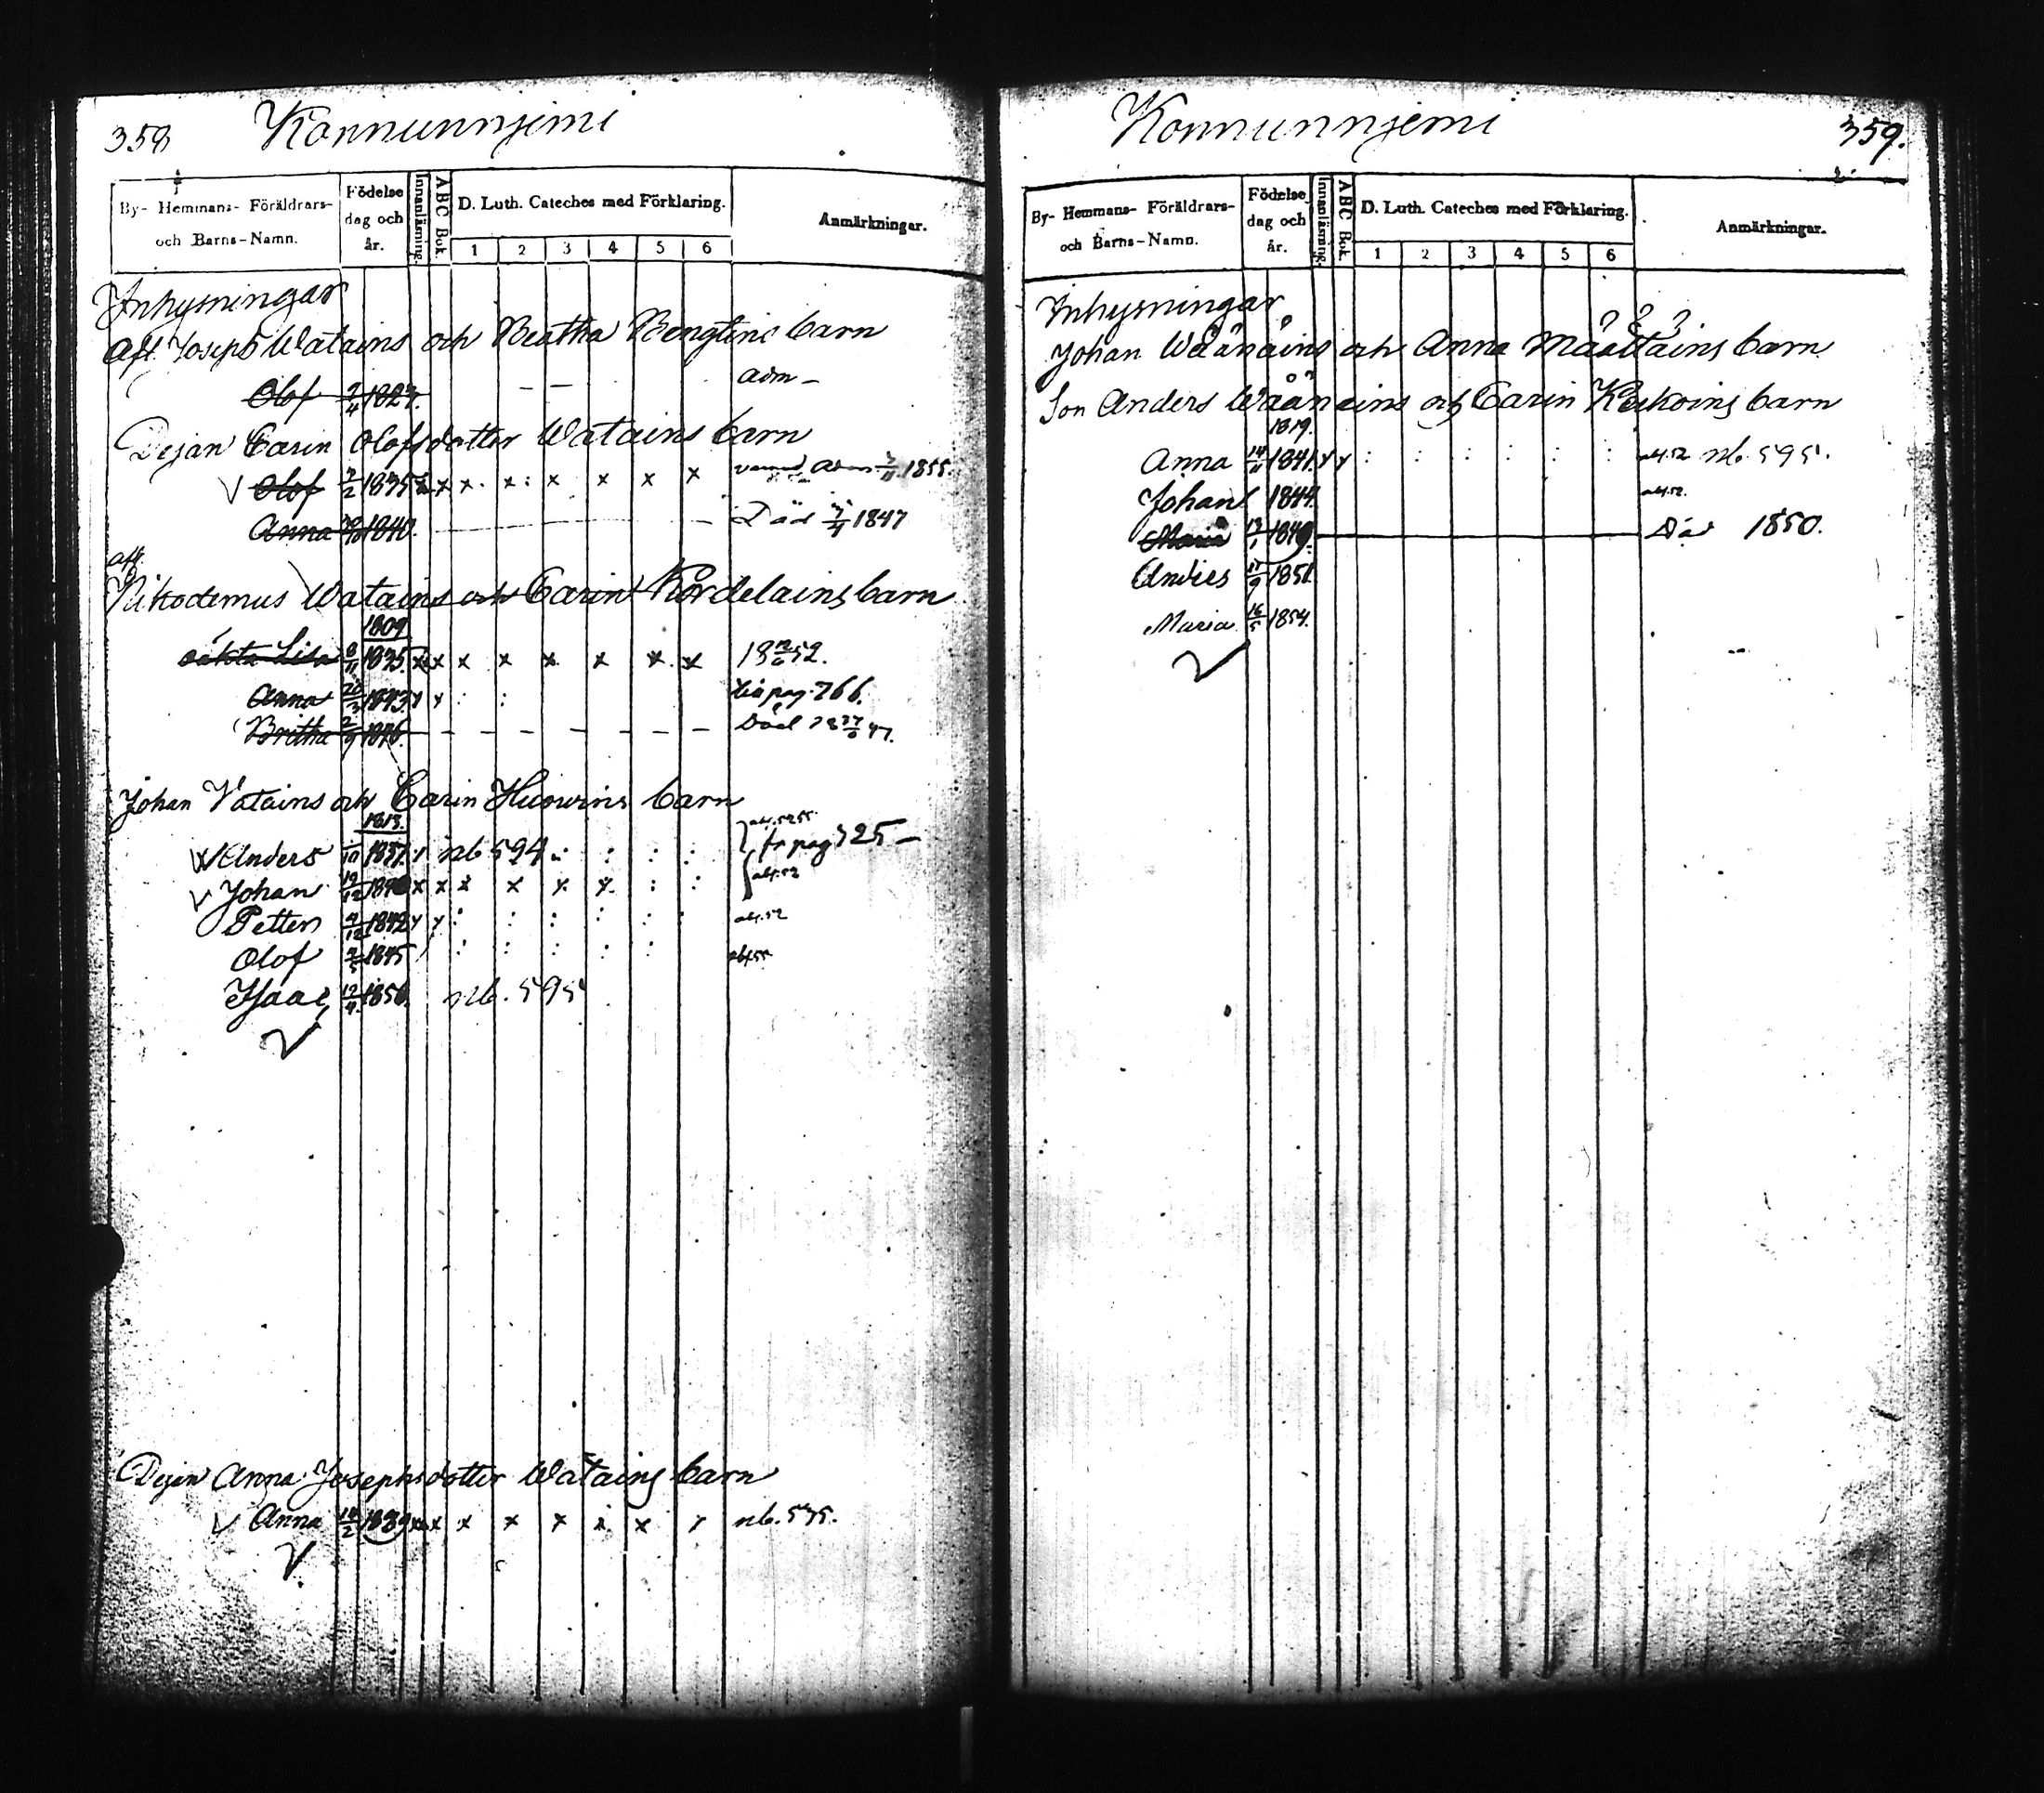 358 Konnunnjemi
By- Hemmans- Föräldrars- och Barns-Namn. Födelse dag och år. Innanläsning. ABC Bok. D. Luth. Cateches med Förklaring. Anmärkningar.
1 2 3 4 5 6
Inhysningar
Afl. Joseph Watains och Beatha Bengtins barn
Olof 2/4 1827. — — adm —
Pejan Carin Olofsdotter Watains barn
Olof 2/2 1835 x x x. x: x x x x 1855.
Anna 1840. Död 1847
afl.
Nikodemus Watains och Carin Kordelains barn
1809
oäkta Lisa 8/11 1835. x x x x x x x. x 18 52.
Anna 20/3 1843. y y : : pag. 766.
Britha 2/9 1846. — — — — — — Död 47.
Johan Vatains och Carin Huowins barn
1813.
Anders /10 1837. y nb 594 : : : : fr pag 725 —
Johan 19/12 1840 x x x x x x : :
Petter 4/12 1842 y y : : : : : : abs. 52
Olof 2/5 1845 : : : : :
Isaac 12/4. 1856. nb. 595
Pejan Anna Josephsdotter Watains barn
Anna 18/2 1839 x x x x x x x y nb. 575.
Konnunnjemi 359.
By- Hemmans- Föräldrars- och Barns-Namn. Födelse dag och år. Innanläsning. ABC Bok. D. Luth. Cateches med Förklaring. Anmärkningar.
1 2 3 4 5 6
Inhysningar
Johan Wäänäins och Anna Määttäins barn
Son Anders Wäänäins och Carin Keikoins barn
1819.
Anna 14/11 1841. y y : : : : : : nb. 595.
Johan 1844.
Maria 13/1 1849. Död 1850.
Anders 1851.
Maria 16/5 1854.